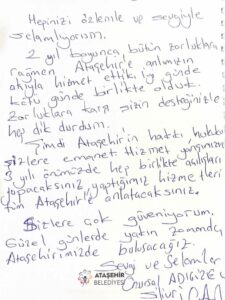 Hepinizi özlemle ve sevgiyle
selamlıyorum.
2 yıl boyunca bütün zorluklara
rağmen Ataşehir'e anlımızın
akıyla hizmet ettik. İyi günde
kötü günde birlikte olduk.
Zorluklara karşı sizin desteğinizle
hep dik durdum.
Şimdi Ataşehir'in hakkı hukuku
sizlere emanet. Hizmet yarışımızın
3 yılı önümüzde hep birlikte açılışları
yapacaksınız, yaptığımız hizmetleri
tüm Ataşehir'e anlatacaksınız.
Sizlere çok güveniyorum.
Güzel günlerde yakın zamanda
Ataşehirimizde buluşacağız.
Sevgi ve Selamlar
Onursal ADIGÜZEL
Silivri
ATAŞEHİR
BELEDİYESİ